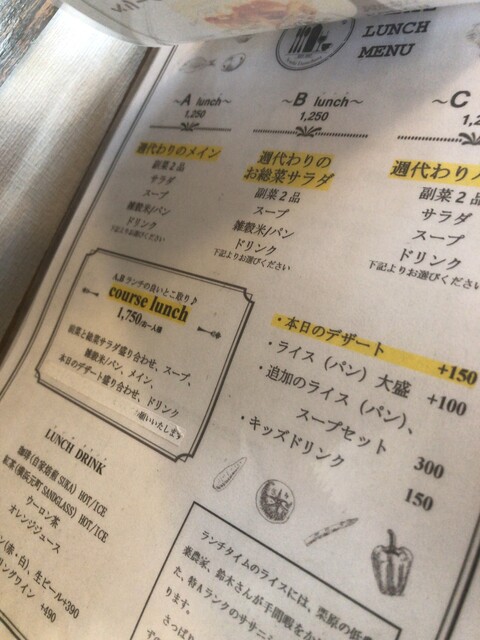 LUNCH
MENU
~A lunch~
1,250
週代わりのメイン
副菜2品
サラダ
スープ
雑穀米/パン
ドリンク
下記よりお選びください
~B lunch~
1,250
週代わりの
お総菜サラダ
副菜2品
スープ
雑穀米/パン
ドリンク
下記よりお選びください
~C
週代わり
副菜2品
サラダ
スープ
ドリンク
下記よりお選びください
A,Bランチの良いとこ取り♪
course lunch
1,750
前菜と総菜サラダ盛り合わせ、スープ、
雑穀米/パン、メイン、
本日のデザート盛り合わせ、ドリンク
願いいたします
・本日のデザート +150
・ライス(パン)大盛 +100
・追加のライス(パン)、
スープセット 300
・キッズドリンク 150
LUNCH DRINK
珈琲(自家焙煎 SUKA) HOT/ICE
紅茶(横浜元町 SANDGLASS) HOT/ICE
ウーロン茶
オレンジジュース
ン(赤・白)、生ビール+390
リングワイン +490
ランチタイムのライスには、栗原の低
薬農家、鈴木さんが手間暇を
た、特Aランクのササニシ
ります。
さっぱり